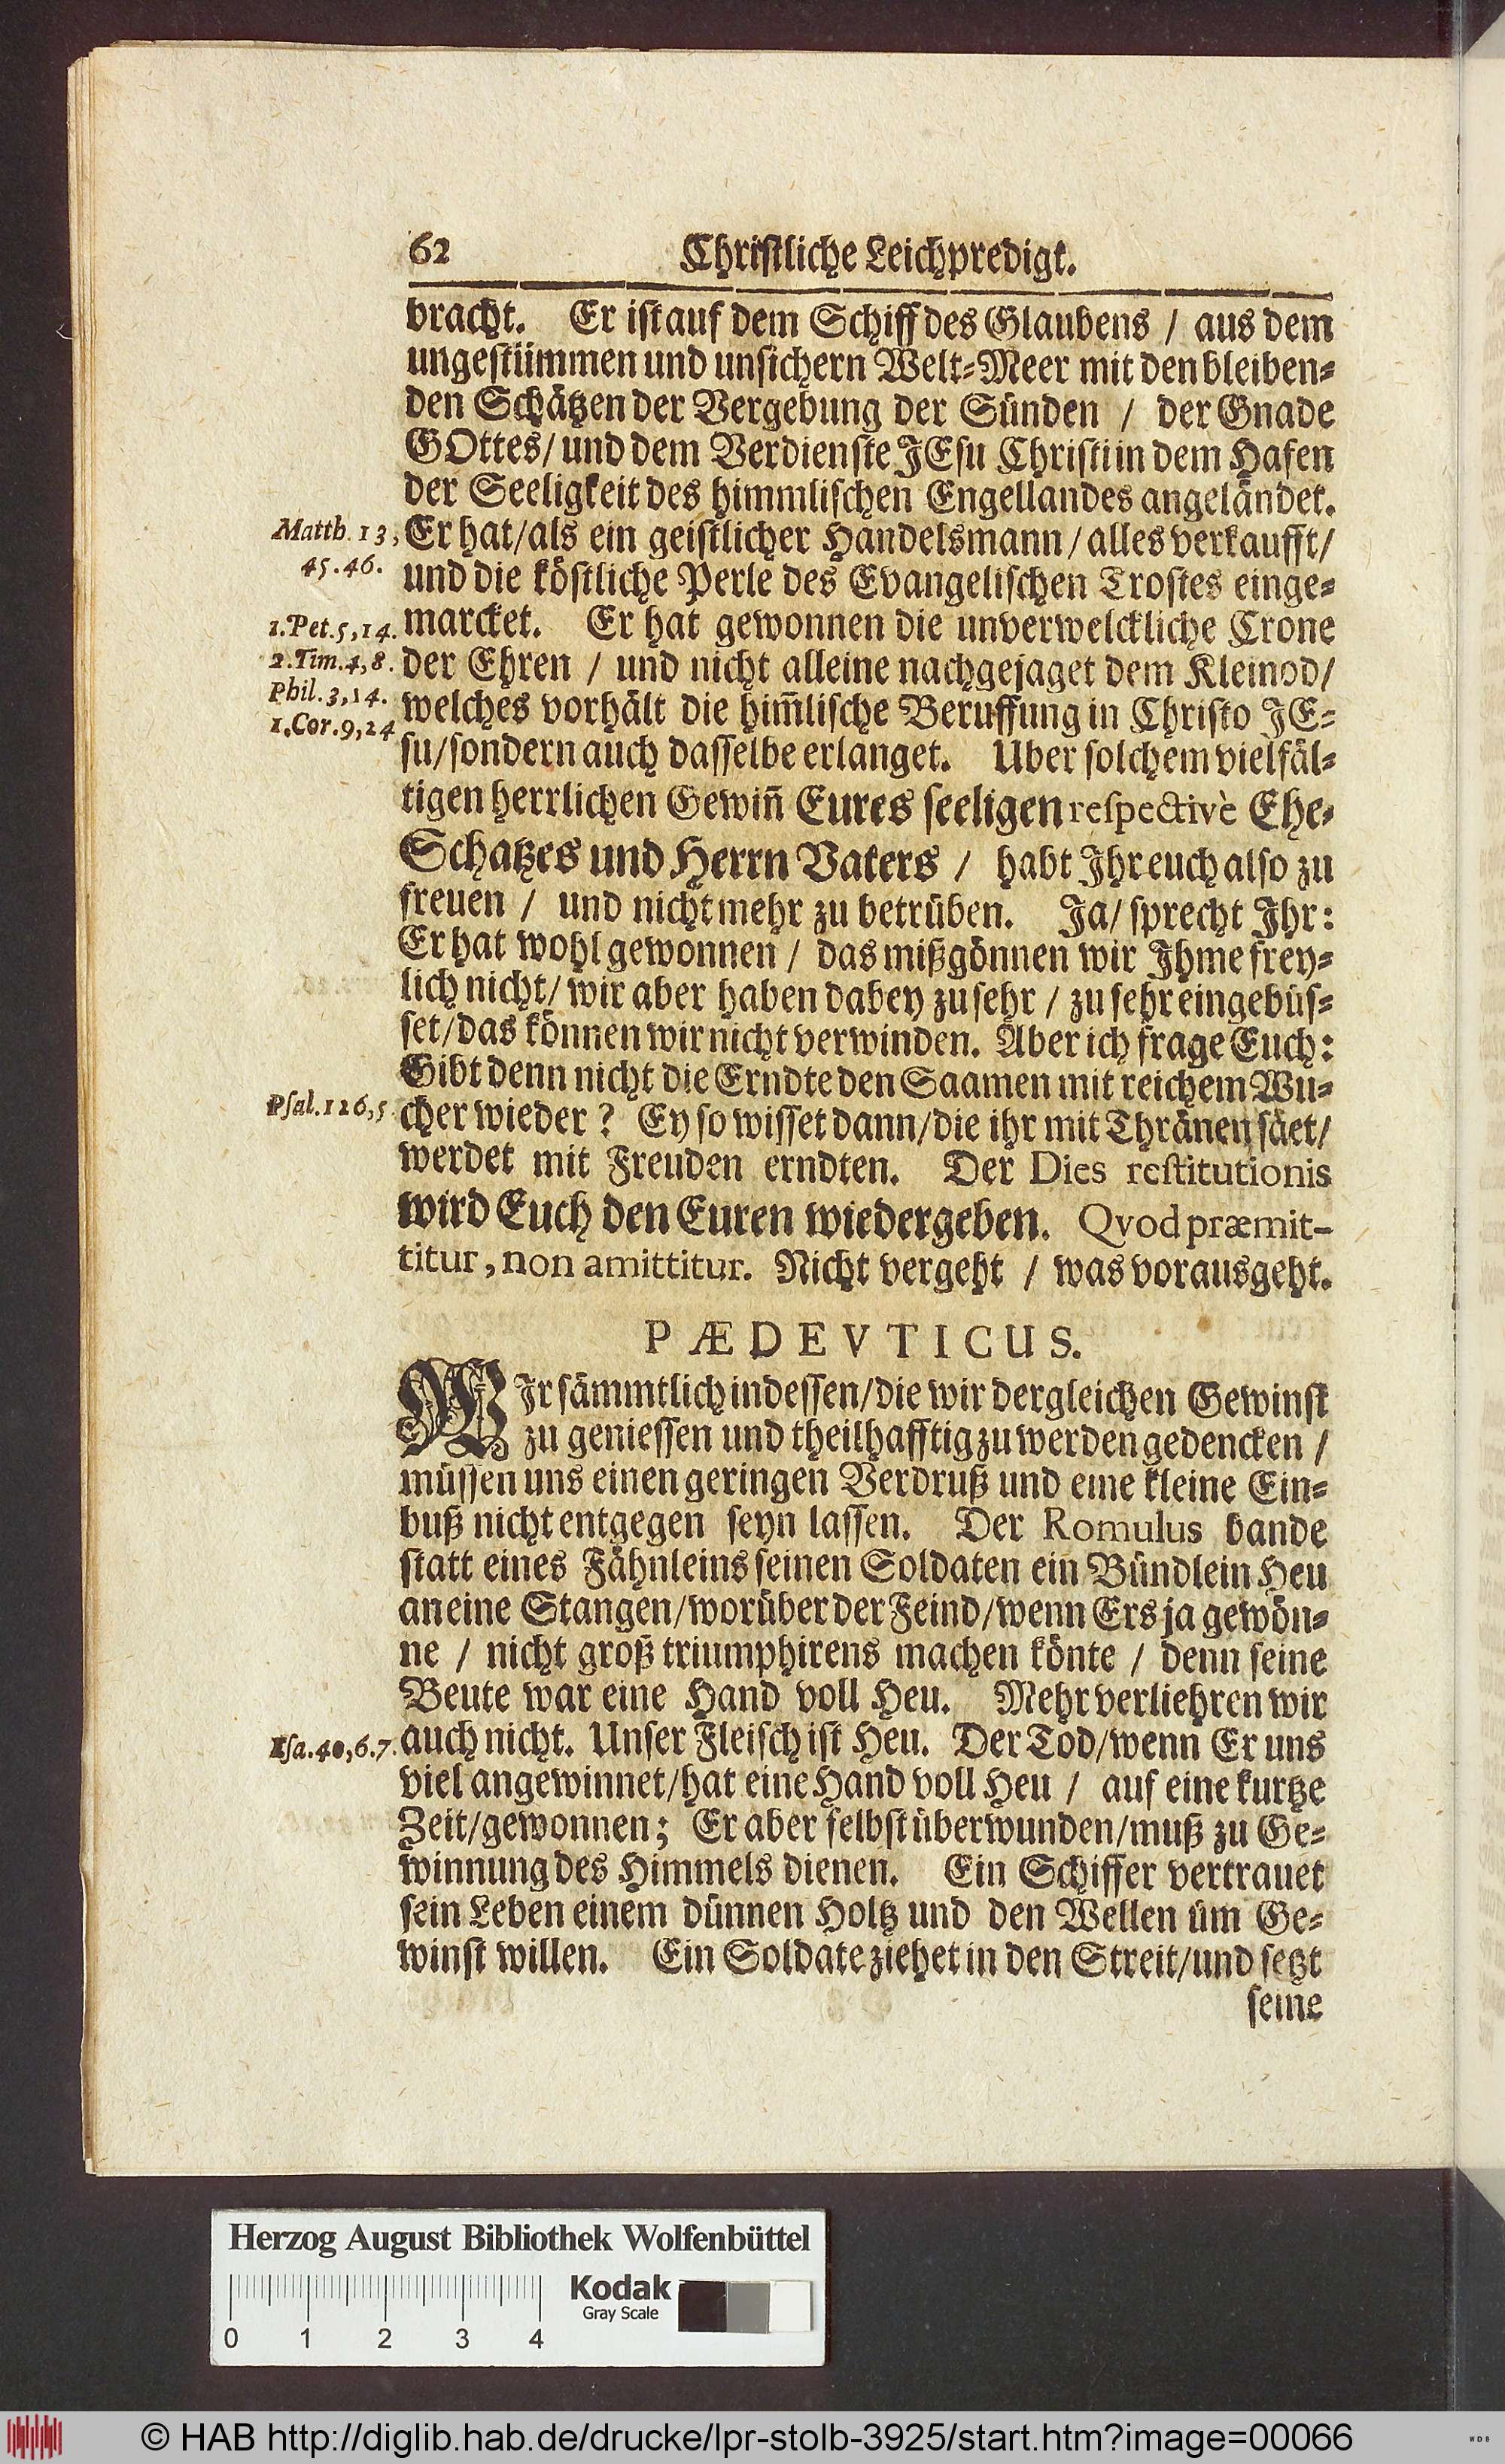 62 Christliche Leichpredigt.
bracht. Er ist auf dem Schiff des Glaubens / aus dem
ungestümmen und unsichern Welt-Meer mit den bleiben-
den Schätzen der Vergebung der Sünden / der Gnade
GOttes/ und dem Verdienste JEsu Christi in dem Hafen
der Seeligkeit des himmlischen Engellandes angeländet.
Matth. 13, Er hat/als ein geistlicher Handelsmann/alles verkaufft/
45.46. und die köstliche Perle des Evangelischen Trostes einge-
1.Pet.5,14. marcket. Er hat gewonnen die unverwelckliche Crone
2.Tim.4,8. der Ehren / und nicht alleine nachgejaget dem Kleinod/
Phil.3,14. welches vorhält die him̃lische Beruffung in Christo JE-
1.Cor.9,24 su/sondern auch dasselbe erlanget. Uber solchem vielfäl-
tigen herrlichen Gewiñ Eures seeligen respectivè Ehe-
Schatzes und Herrn Vaters / habt Ihr euch also zu
freuen / und nicht mehr zu betrüben. Ja/ sprecht Ihr:
Er hat wohl gewonnen / das mißgönnen wir Ihme frey-
lich nicht/ wir aber haben dabey zu sehr / zu sehr eingebüs-
set/das können wir nicht verwinden. Aber ich frage Euch:
Gibt denn nicht die Erndte den Saamen mit reichem Wu-
Psal.126,5. cher wieder? Ey so wisset dann/die ihr mit Thränen säet/
werdet mit Freuden erndten. Der Dies restitutionis
wird Euch den Euren wiedergeben. Qvod præmit-
titur, non amittitur. Nicht vergeht / was vorausgeht.
PÆDEVTICUS.
WIr sämmtlich indessen/die wir dergleichen Gewinst
zu geniessen und theilhafftig zu werden gedencken /
müssen uns einen geringen Verdruß und eine kleine Ein-
buß nicht entgegen seyn lassen. Der Romulus bande
statt eines Fähnleins seinen Soldaten ein Bündlein Heu
an eine Stangen/worüber der Feind/wenn Ers ja gewön-
ne / nicht groß triumphirens machen könte / denn seine
Beute war eine Hand voll Heu. Mehr verliehren wir
Esa.40,6.7. auch nicht. Unser Fleisch ist Heu. Der Tod/wenn Er uns
viel angewinnet/hat eine Hand voll Heu / auf eine kurtze
Zeit/gewonnen; Er aber selbst überwunden/muß zu Ge-
winnung des Himmels dienen. Ein Schiffer vertrauet
sein Leben einem dünnen Holtz und den Wellen üm Ge-
winst willen. Ein Soldate ziehet in den Streit/und setzt
seine
Herzog August Bibliothek Wolfenbüttel
Kodak
Gray Scale
0 1 2 3 4
© HAB http://diglib.hab.de/drucke/lpr-stolb-3925/start.htm?image=00066
WDB